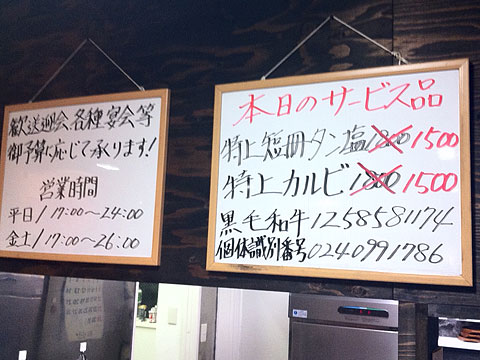 歓送迎会、各種宴会等
御予算に応じて承ります!
営業時間
平日/17:00〜24:00
金土/17:00〜26:00
本日のサービス品
特上短冊タン塩1800 1500
特上カルビ1800 1500
黒毛和牛1258581174
個体識別番号0240991786